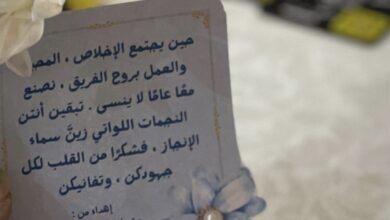 حين يجتمع الإخلاص ، المص
والعمل بروح الفريق ، نصنع
معًا عامًا لا ينسى . تبقين أنتن
النجمات اللواتي زينَّ سماء
الإنجاز ، فشكرًا من القلب لكل
جهودكن ، وتفانيكن
إهداء من :